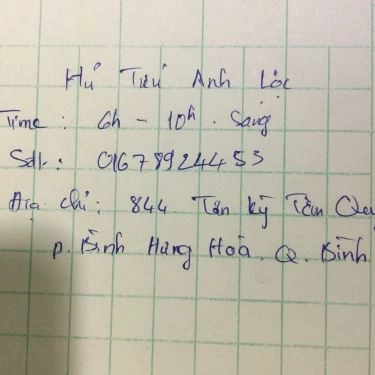 Hủ Tiếu Anh Lộc
Time: 6h - 10h. Sáng
Sdt: 01678924453
Địa chỉ: 844 Tân Kỳ Tân Quý
P. Bình Hưng Hoà. Q. Bình